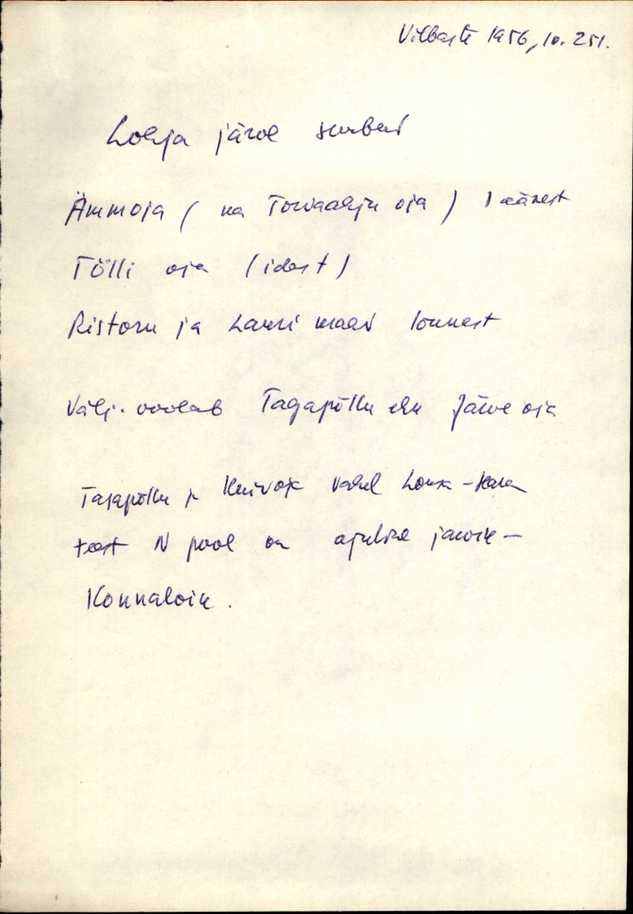 Vilbaste 1956, lk. 251.
Lohja järve suubuvad
Ämmoja ( ka Torvaaugu oja ) läänest
Tölli oja (idast)
Ristoru ja Lauri maad lõunast
Välj. voolab Tagapõllu ehk Järve oja
Tagapõllu ja Kuivoja vahel Loksa -
teest N pool on ajutine järvik -
Konnaloik.